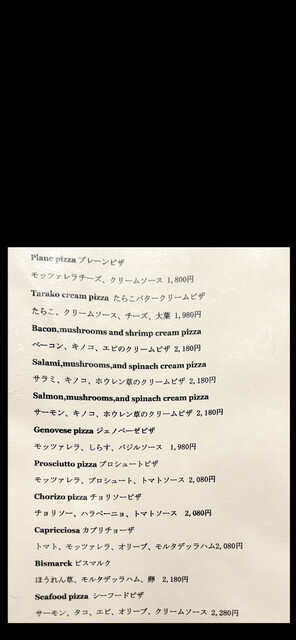 Plane pizza プレーンピザ
モッツァレラチーズ、クリームソース 1,800円
Tarako cream pizza たらこバタークリームピザ
たらこ、クリームソース、チーズ、大葉 1,980円
Bacon,mushrooms and shrimp cream pizza
ベーコン、キノコ、エビのクリームピザ 2,180円
Salami,mushrooms,and spinach cream pizza
サラミ、キノコ、ホウレン草のクリームピザ 2,180円
Salmon,mushrooms,and spinach cream pizza
サーモン、キノコ、ホウレン草のクリームピザ 2,180円
Genovese pizza ジェノベーゼピザ
モッツァレラ、しらす、バジルソース 1,980円
Prosciutto pizza プロシュートピザ
モッツァレラ、プロシュート、トマトソース 2,080円
Chorizo pizza チョリソーピザ
チョリソー、ハラペーニョ、トマトソース 2,080円
Capricciosa カプリチョーザ
トマト、モッツァレラ、オリーブ、モルタデッラハム2,080円
Bismarck ビスマルク
ほうれん草、モルタデッラハム、卵 2,180円
Seafood pizza シーフードピザ
サーモン、タコ、エビ、オリーブ、クリームソース 2,280円